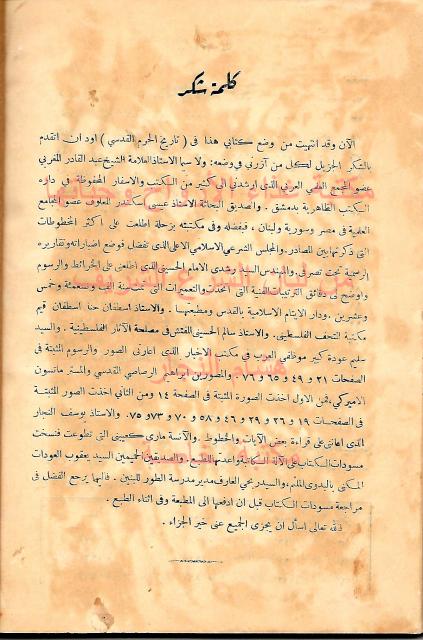 كلمة شكر
الآن وقد انتهيت من وضع كتابي هذا في (تاريخ الحرم القدسي) اود ان اتقدم
بالشكر الجزيل لكل من آزرني في وضعه: ولا سيما الاستاذ العلامة الشيخ عبد القادر المغربي
عضو المجمع العلمي العربي الذي ارشدني الى كثير من الكتب والاسفار المحفوظة في دار
الكتب الظاهرية بدمشق. والصديق البحاثة الاستاذ عيسى اسكندر المعلوف عضو المجامع
العلمية في مصر وسورية ولبنان، فبفضله وفي مكتبته بزحلة اطلعت على اكثر المخطوطات
التي ذكرتها بين المصادر. والمجلس الشرعي الاسلامي الاعلى الذي تفضل فوضع اضباراته وتقاريره
الرسمية تحت تصرفي. والمهندس السيد رشدي الامام الحسيني الذي اطلعني على الخرائط والرسوم
واوضح لي دقائق الترتيبات الفنية التي اتخذت والتعميرات التي تمت سنة الف وتسعمئة وخمس
وعشرين. ودار الايتام الاسلامية بالقدس ومطبعتها. والاستاذ اسطفان حنا اسطفان قيم
مكتبة المتحف الفلسطيني. والاستاذ سالم الحسيني المفتش في مصلحة الآثار الفلسطينية. والسيد
سليم عودة كبير موظفي العرب في مكتب الاخبار الذي اعارني الصور والرسوم المثبتة في
الصفحات ٢١ و ٤٩ و ٦٥ و ٧٦. والمصورين ابراهيم الرصاصي القدسي والمستر ماتسون
الاميركي، فمن الاول اخذت الصورة المثبتة في الصفحة ١٤ ومن الثاني اخذت الصور المثبتة
في الصفحات ١٩ و ٢٦ و ٢٩ و ٤٦ و ٥٨ و ٧٠ و ٧٣ و ٧٥. والاستاذ يوسف النجار
الذي اعانني على قراءة بعض الآيات والخطوط. والآنسة ماري كعيني التي تطوعت فنسخت
مسودات الكتاب على الآلة الكاتبة واعدتها للطبع. والصديقين الحميمين السيد يعقوب العودات
المكنى بالبدوي الملثم، والسيد يحي العارف مدير مدرسة الطور للبنين. فاليهما يرجع الفضل في
مراجعة مسودات الكتاب قبل ان ادفعها الى المطبعة وفي اثناء الطبع.
فالله تعالى اسأل ان يجزي الجميع عني خير الجزاء.